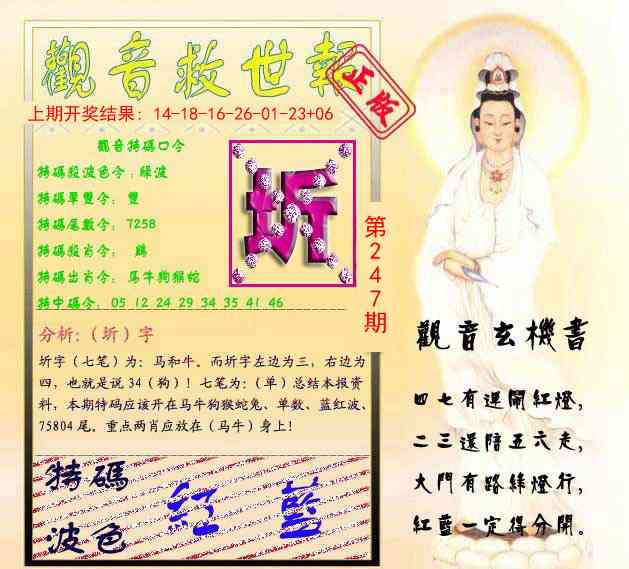 觀音救世報
正版
上期开奖结果：14-18-16-26-01-23+06
觀音特碼口令
特碼殺波色令：綠波
特碼單雙令： 雙
特碼尾數令： 7258
特碼殺肖令： 鷄
特碼出肖令： 馬牛狗猴蛇
特中碼令： 05 12 24 29 34 35 41 46
圻
第247期
分析:（圻）字
圻字（七笔）为：马和牛。而圻字左边为三，右边为
四，也就是说 34（狗）！七笔为：（单）总结本报资
料，本期特码应该开在马牛狗猴蛇兔、单数、蓝红波、
75804 尾。重点两肖应放在（马牛）身上！
特碼
波色
紅 藍
觀音玄機書
四七有運開紅燈，
二三還陪五六走，
大門有路綠燈行，
紅藍一定得分開。